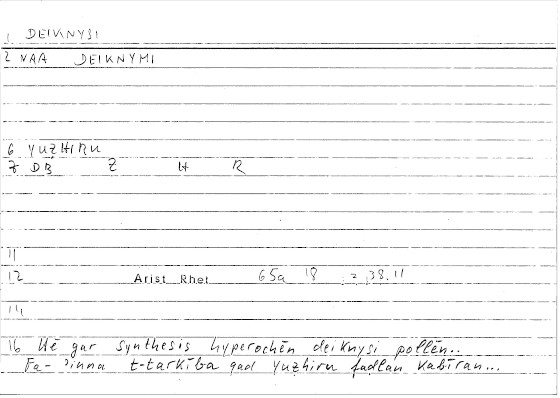 1 DEIKNYSI
2 VAA DEIKNYMI
6 YUẒHIRU
7 DB Ẓ H R
11
12 Arist Rhet 65a 18 = 38.11
14
16 Hē gar synthesis hyperochēn deiknysi pollēn..
Fa- 'inna t-tarkība qad yuẓhiru faḍlan kabīran...